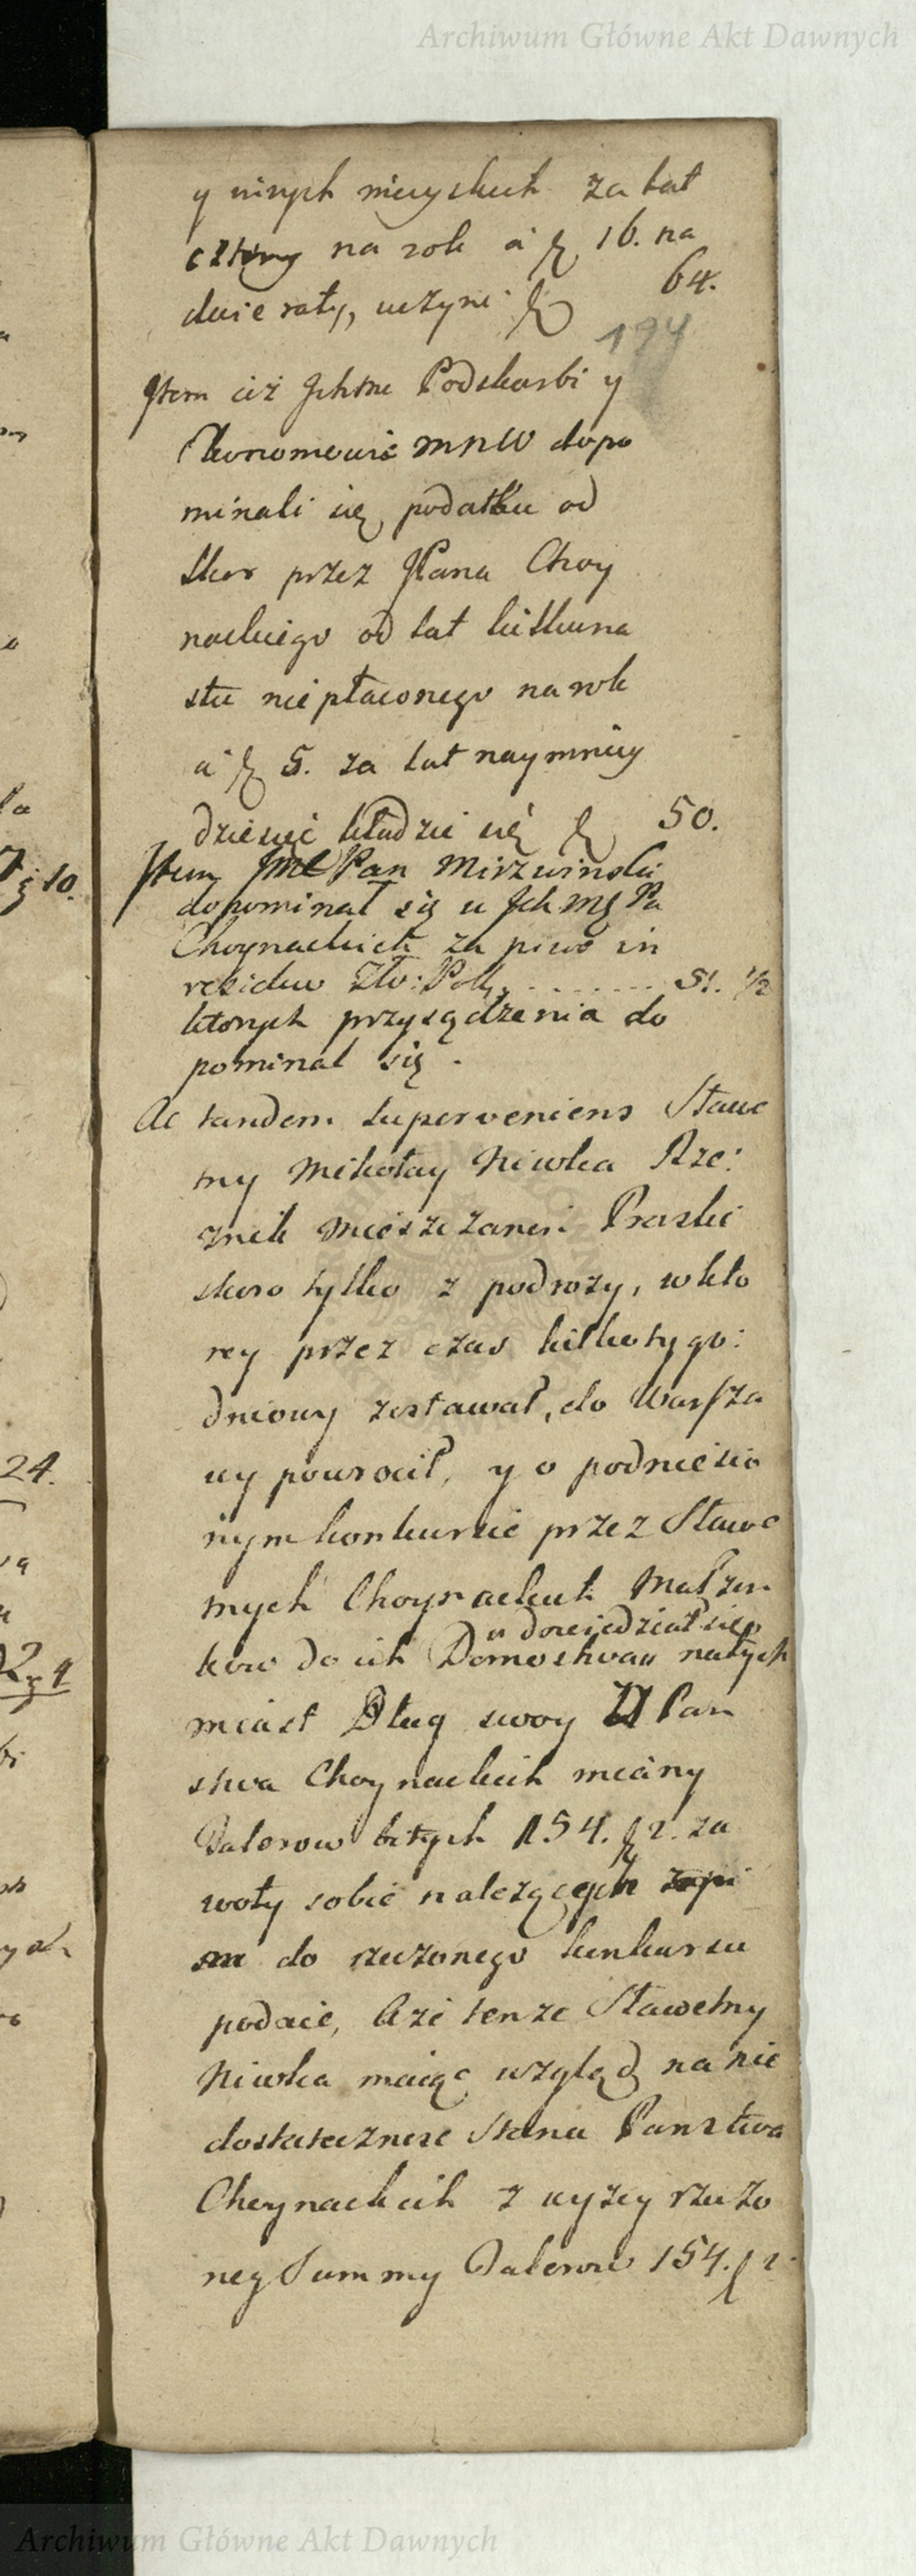 Archiwum Główne Akt Dawnych
y innych mieyscach za lat
cztery na rok a 16. na
dwie raty, uczyni 64.
194
Item ciż Ichmc Podskarbi y
Ekonomowie MNW dopo
minali się podatku od
skor przez JPana Choy
nackiego od lat kilkuna
stu nie płaconego na rok
a 5. za lat naymniey
dziesięć kładzie się 50.
Item JMC Pan Mirzwinski
dopominał się u Ich Mę Pa
Choynackich za piwo in
residuo Zło: Pol. . . . . . . . . 51. 1/2
ktorych przysądzenia do
pominal się .
Ac tandem superveniens Sławe
tny Mikołay Niwka Rze:
znik Mieszczanin Praski
skoro tylko z podroży, w kto
rey przez czas kilkotygo:
dniowy zostawał, do Warsza
wy powrocił, y o podniesio
nym konkursie przez Sławe
tnych Choynackich Małżon
dowiedział się
kow do ich Domostwa natych
miast Dług swoy U Pan
stwa Choynackich miany
Talerow bitych 154. 2. za
woły sobie należących
do rzeczonego konkursu
podaie, Aże tenze Sławetny
Niwka maiąc wzgląd na nie
dostateczność Stanu Panstwa
Choynackich z wyzey rzeczo
ney Summy Talerow 154. 2.
la
10.
24.
Archiwum Główne Akt Dawnych